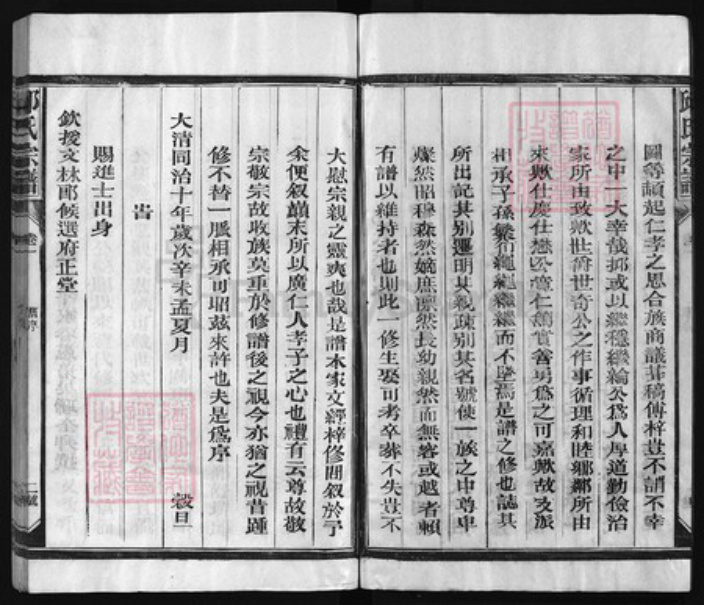 邱氏宗譜
圖等頡起仁孝之思合族商議草稿傳梓豈不謂不幸
之中一大幸哉抑或以繼穩繼綸公為人厚道勤儉治
家所由致歟世爵世奇公之作事循理和睦鄉鄰所由
來歟仕慶仕懋公寬仁篤實含
為之可嘉歟故支派
相承子孫繁衍繩繩繼繼而不墜焉是譜之修也誌其
所出記其別遷明其親疎別其名號使一族之中尊卑
燦然昭穆森然嫡庶凛然長幼親然而無畧或越者賴
有譜以維持者也則此一修生娶可考卒葬不失豈不
大慰宗親之靈爽也哉是譜本家文經梓修囬叙於予
余便叙巔末所以廣仁人孝子之心也禮有云尊故敬
宗敬宗故收族莫重於修譜後之視今亦猶之視昔踵
修不替一脈相承可昭茲來許也夫是為序
大清同治十年歲次辛未孟夏月 穀旦
旹
賜進士出身
欽授文林郎候選府正堂
邱氏宗譜
卷一
舊序
二